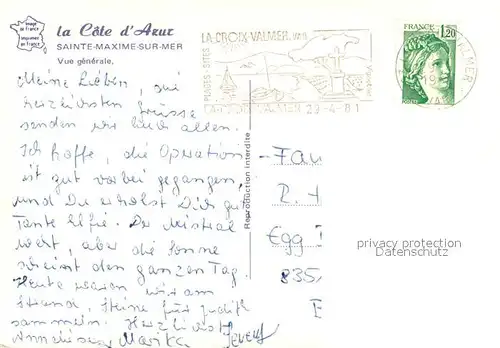 Image de France
Imprimée en France
la Côte d'Azur
SAINTE-MAXIME-SUR-MER
Vue générale,
LA CROIX-VALMER, VAR
PLAGES SITES
LA CROIX VALMER 29-4-81
FRANCE
1,20
POSTES
VALMER
VAR
Reproduction interdite
Meine Lieben,
herzlichsten Grüsse
senden wir Euch allen.
Ich hoffe, die Operation
ist gut vorbei gegangen,
und Du erholst Dich gut
Tante Elfie. Der Mistral
weht, aber die Sonne
scheint den ganzen Tag.
Heute waren wir am
Strand, Steine für Judith
sammeln. Herzlichst
Annelies Marika
Fam
Egg
835
privacy protection
Datenschutz